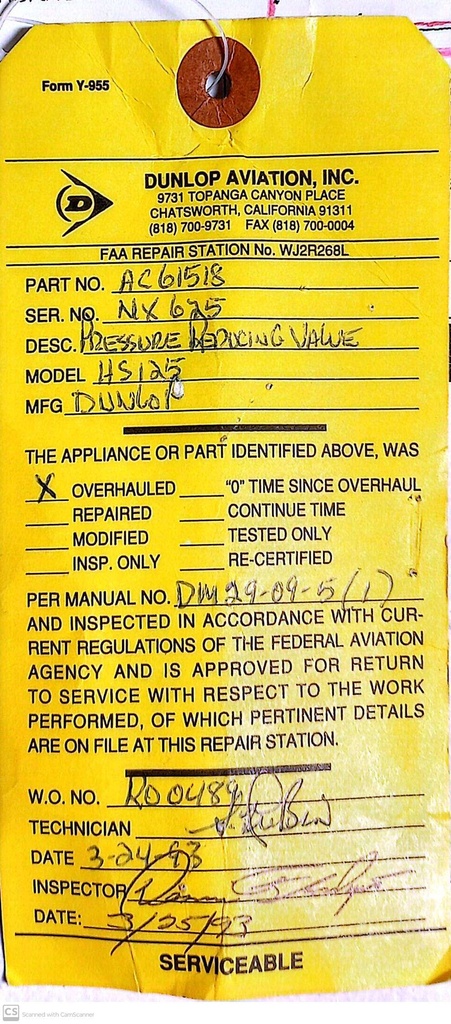 Form Y-955
D
DUNLOP AVIATION, INC.
9731 TOPANGA CANYON PLACE
CHATSWORTH, CALIFORNIA 91311
(818) 700-9731 FAX (818) 700-0004
FAA REPAIR STATION No. WJ2R268L
PART NO. AC61518
SER. NO. NX 625
DESC. PRESSURE REDUCING VALVE
MODEL HS125
MFG DUNLOP
THE APPLIANCE OR PART IDENTIFIED ABOVE, WAS
X OVERHAULED ____ "0" TIME SINCE OVERHAUL
____ REPAIRED ____ CONTINUE TIME
____ MODIFIED ____ TESTED ONLY
____ INSP. ONLY ____ RE-CERTIFIED
PER MANUAL NO. DM29-09-5 (1)
AND INSPECTED IN ACCORDANCE WITH CUR-
RENT REGULATIONS OF THE FEDERAL AVIATION
AGENCY AND IS APPROVED FOR RETURN
TO SERVICE WITH RESPECT TO THE WORK
PERFORMED, OF WHICH PERTINENT DETAILS
ARE ON FILE AT THIS REPAIR STATION.
W.O. NO. RD0489
TECHNICIAN
DATE 3-24-93
INSPECTOR
DATE: 3/25/93
SERVICEABLE
CS Scanned with CamScanner